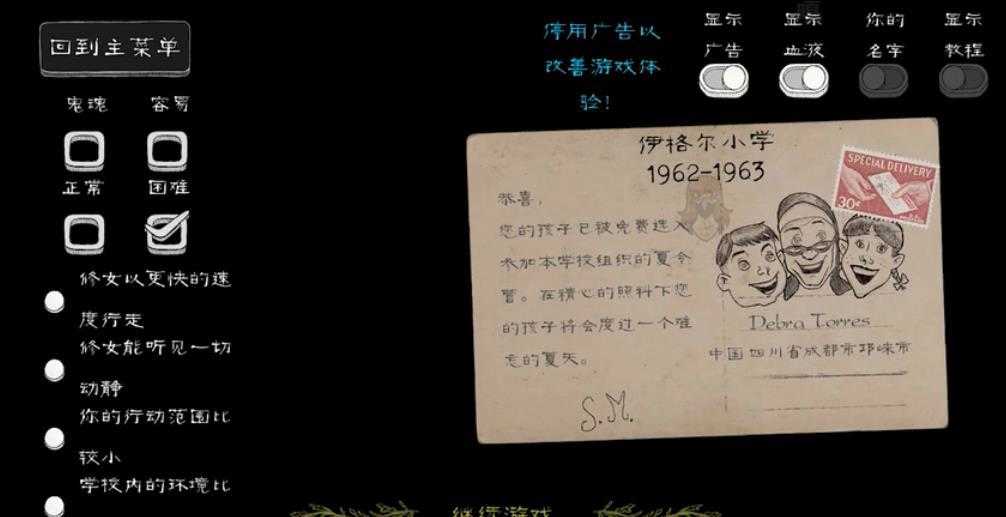 回到主菜单
停用广告以
改善游戏体
验!
显示
广告
显示
血液
你的
名字
显示
教程
鬼魂
容易
正常
困难
修女以更快的速
度行走
修女能听见一切
动静
你的行动范围比
较小
学校内的环境比
伊格尔小学
1962-1963
恭喜,
您的孩子已被免费选入
参加本学校组织的夏令
营。在精心的照料下您
的孩子将会度过一个难
忘的夏天。
S.M.
SPECIAL DELIVERY
30¢
Debra Torres
中国四川省成都市邛崃市
继续游戏